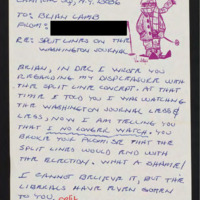 TO: BRIAN LAMB
FROM:
RE: SPLIT LINES ON THE
WASHINGTON JOURNAL
BRIAN, IN DEC I WROTE YOU
REGARDING MY DISPLEASURE WITH
THE SPLIT LINE CONCEPT. AT THAT
TIME I TOLD YOU I WAS WATCHING
THE WASHINGTON JOURNAL LESS &
LESS; NOW I AM TELLING YOU
THAT I NO LONGER WATCH. YOU
BROKE YOUR PROMISE THAT THE
SPLIT LINES WOULD END WITH
THE ELECTION. WHAT A SHAME!
I CANNOT BELIEVE IT, BUT THE
LIBERALS HAVE EVEN GOTTEN
TO YOU.